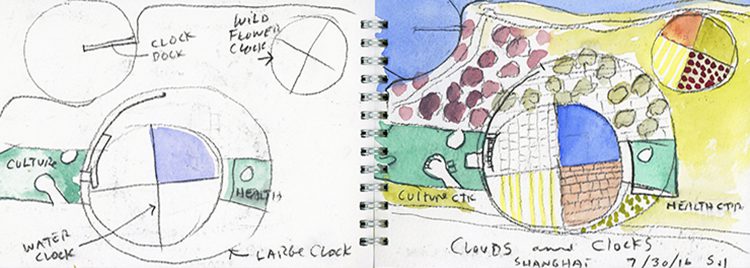 CLOCK
DOCK
WILD
FLOWER
CLOCK
CULTURE
HEALTH
WATER
CLOCK
LARGE CLOCK
CULTURE CTR
HEALTH CTR
CLOUDS and CLOCKS
SHANGHAI 7/30/16